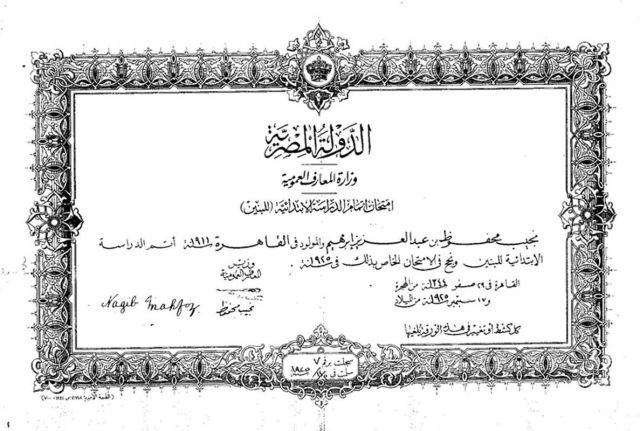 الدولة المصرية
وزارة المعارف العمومية
امتحان اتمام الدراسة الابتدائية (للبنين)
نجيب محفوظ بن عبد العزيز ابرهيم والمولود في القاهرة سنة ١٩١١ أتم الدراسة
الابتدائية للبنين ونجح في الامتحان الخاص بذلك في سنة ١٩٢٥
القاهرة في ٢٩ صفر سنة ١٣٤٤ من الهجرة
و ١٧ سبتمبر سنة ١٩٢٥ من الميلاد
وزير
المعارف العمومية
نجيب محفوظ
Nagib Mahfoz
كل كشط أو تغيير في هذه الورقة يلغيها
سجلت برقم ٧